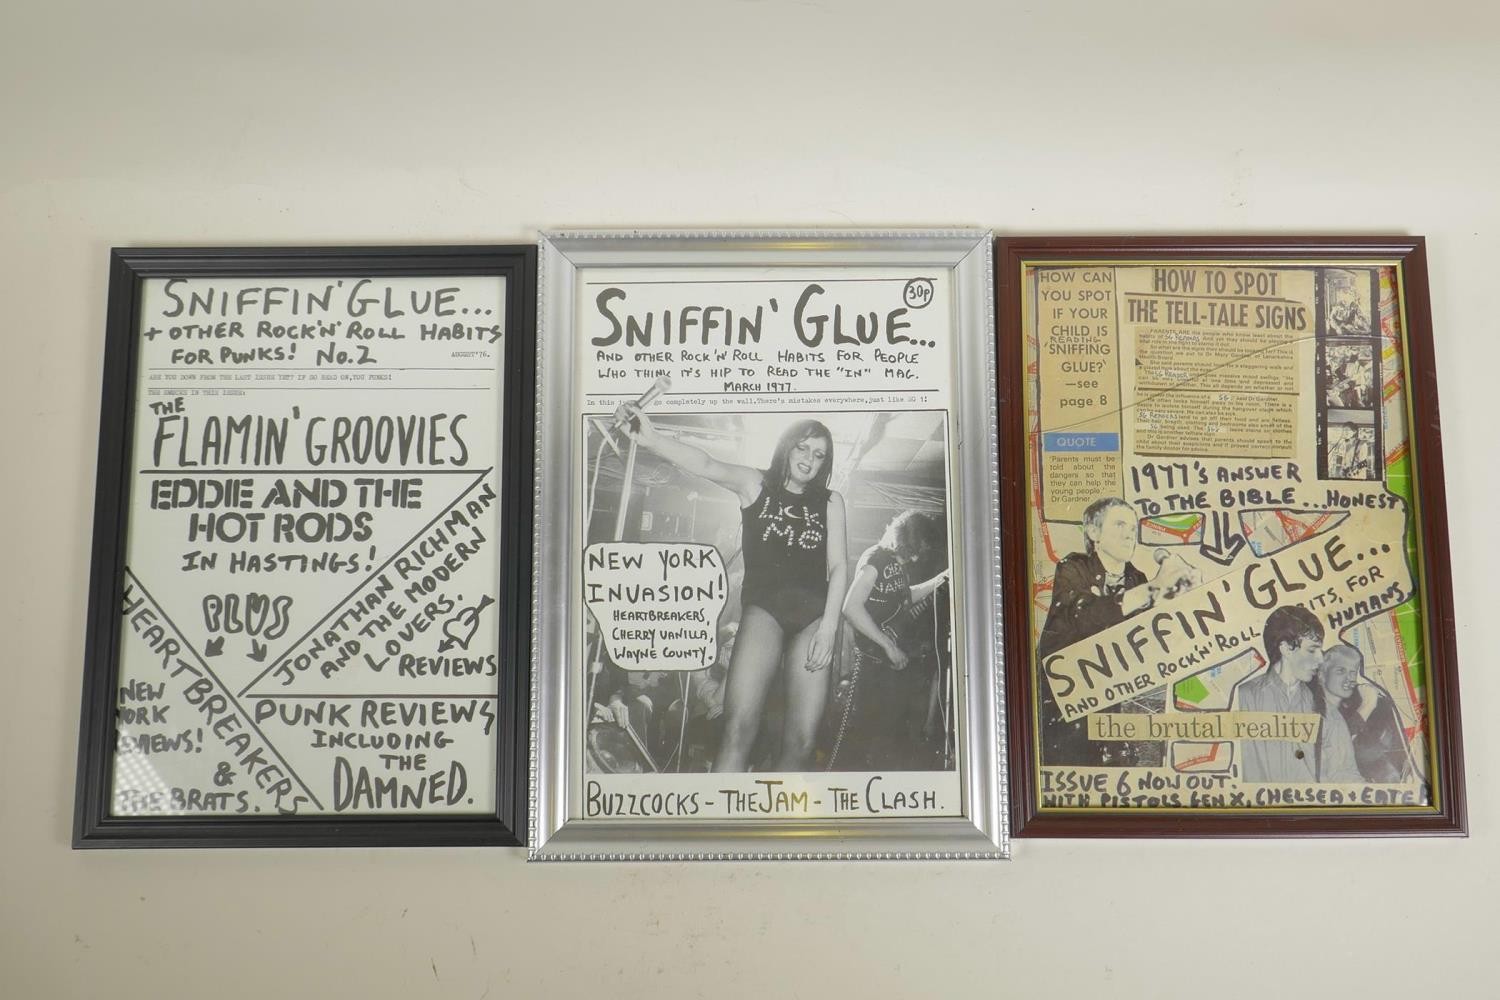 SNIFFIN' GLUE...
+ OTHER ROCK'N'ROLL HABITS
FOR PUNKS! No.2
AUGUST'76.
ARE YOU DOWN FROM THE LAST ISSUE YET? IF SO READ ON, YOU PUNKS!
THE SMACKS IN THIS ISSUE:
THE
FLAMIN' GROOVIES
EDDIE AND THE
HOT RODS
IN HASTINGS!
PLUS
JONATHAN RICHMAN
AND THE MODERN
LOVERS.
REVIEWS
HEARTBREAKERS
NEW
YORK
&
THE BRATS.
PUNK REVIEWS
INCLUDING
THE
DAMNED.
30p
SNIFFIN' GLUE...
AND OTHER ROCK'N'ROLL HABITS FOR PEOPLE
WHO THINK IT'S HIP TO READ THE "IN" MAG.
MARCH 1977.
In this go completely up the wall.There's mistakes everywhere,just like SG 1!
LICK
ME
NEW YORK
INVASION!
HEARTBREAKERS,
CHERRY VANILLA,
WAYNE COUNTY.
BUZZCOCKS - THE JAM - THE CLASH.
HOW CAN
YOU SPOT
IF YOUR
CHILD IS
READING
'SNIFFING
GLUE?'
—see
page 8
QUOTE
'Parents must be
told about the
dangers so that
they can help the
young people.' —
Dr Gardner
HOW TO SPOT
THE TELL-TALE SIGNS
1977's ANSWER
TO THE BIBLE...HONEST.
SNIFFIN' GLUE...
AND OTHER ROCK'N'ROLL
FOR
HUMANS
the brutal reality
ISSUE 6 NOW OUT!
WITH PISTOLS, GEN X, CHELSEA + EATER